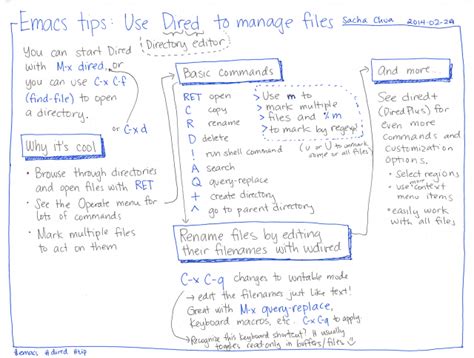 Emacs tips: Use Dired to manage files
Sacha Chua 2014-02-24
(Directory editor)
You can start Dired
with M-x dired, or
you can use C-x C-f
(find-file) to open
a directory.
or C-x d
Why it's cool
• Browse through directories
and open files with RET
• See the Operate menu for
lots of commands
• Mark multiple files
to act on them
Basic commands
RET open
C copy
R rename
D delete
! run shell command
A search
Q query-replace
+ create directory
^ go to parent directory
Use m to
mark multiple
files and %m
to mark by regexp!
(u or U to unmark
some or all files)
Rename files by editing
their filenames with wdired
C-x C-q changes to writable mode
→ edit the filenames just like text!
Great with M-x query-replace,
Keyboard macros, etc. C-x C-q to apply.
Recognize this keyboard shortcut? It usually
toggles read-only in buffers/files
And more
See dired+
(DiredPlus) for
even more
commands and
customization
options.
• Select regions
• use more context
menu items
• easily work
with all files
#emacs #dired #tip